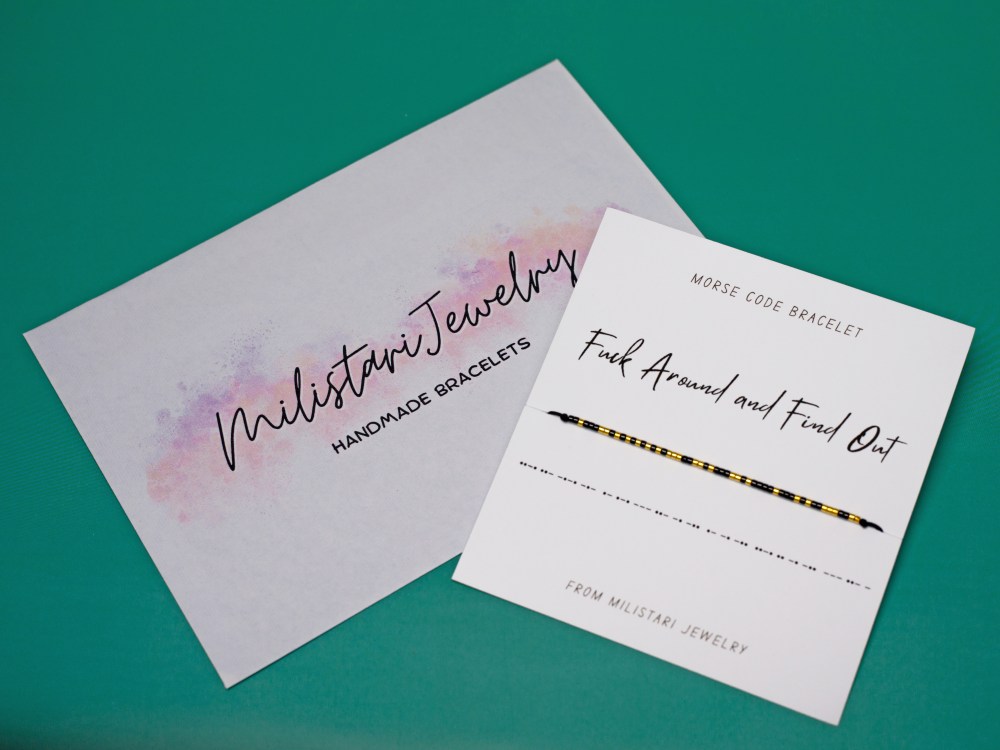 Milistari Jewelry
HANDMADE BRACELETS
MORSE CODE BRACELET
Fuck Around and Find Out
FROM MILISTARI JEWELRY